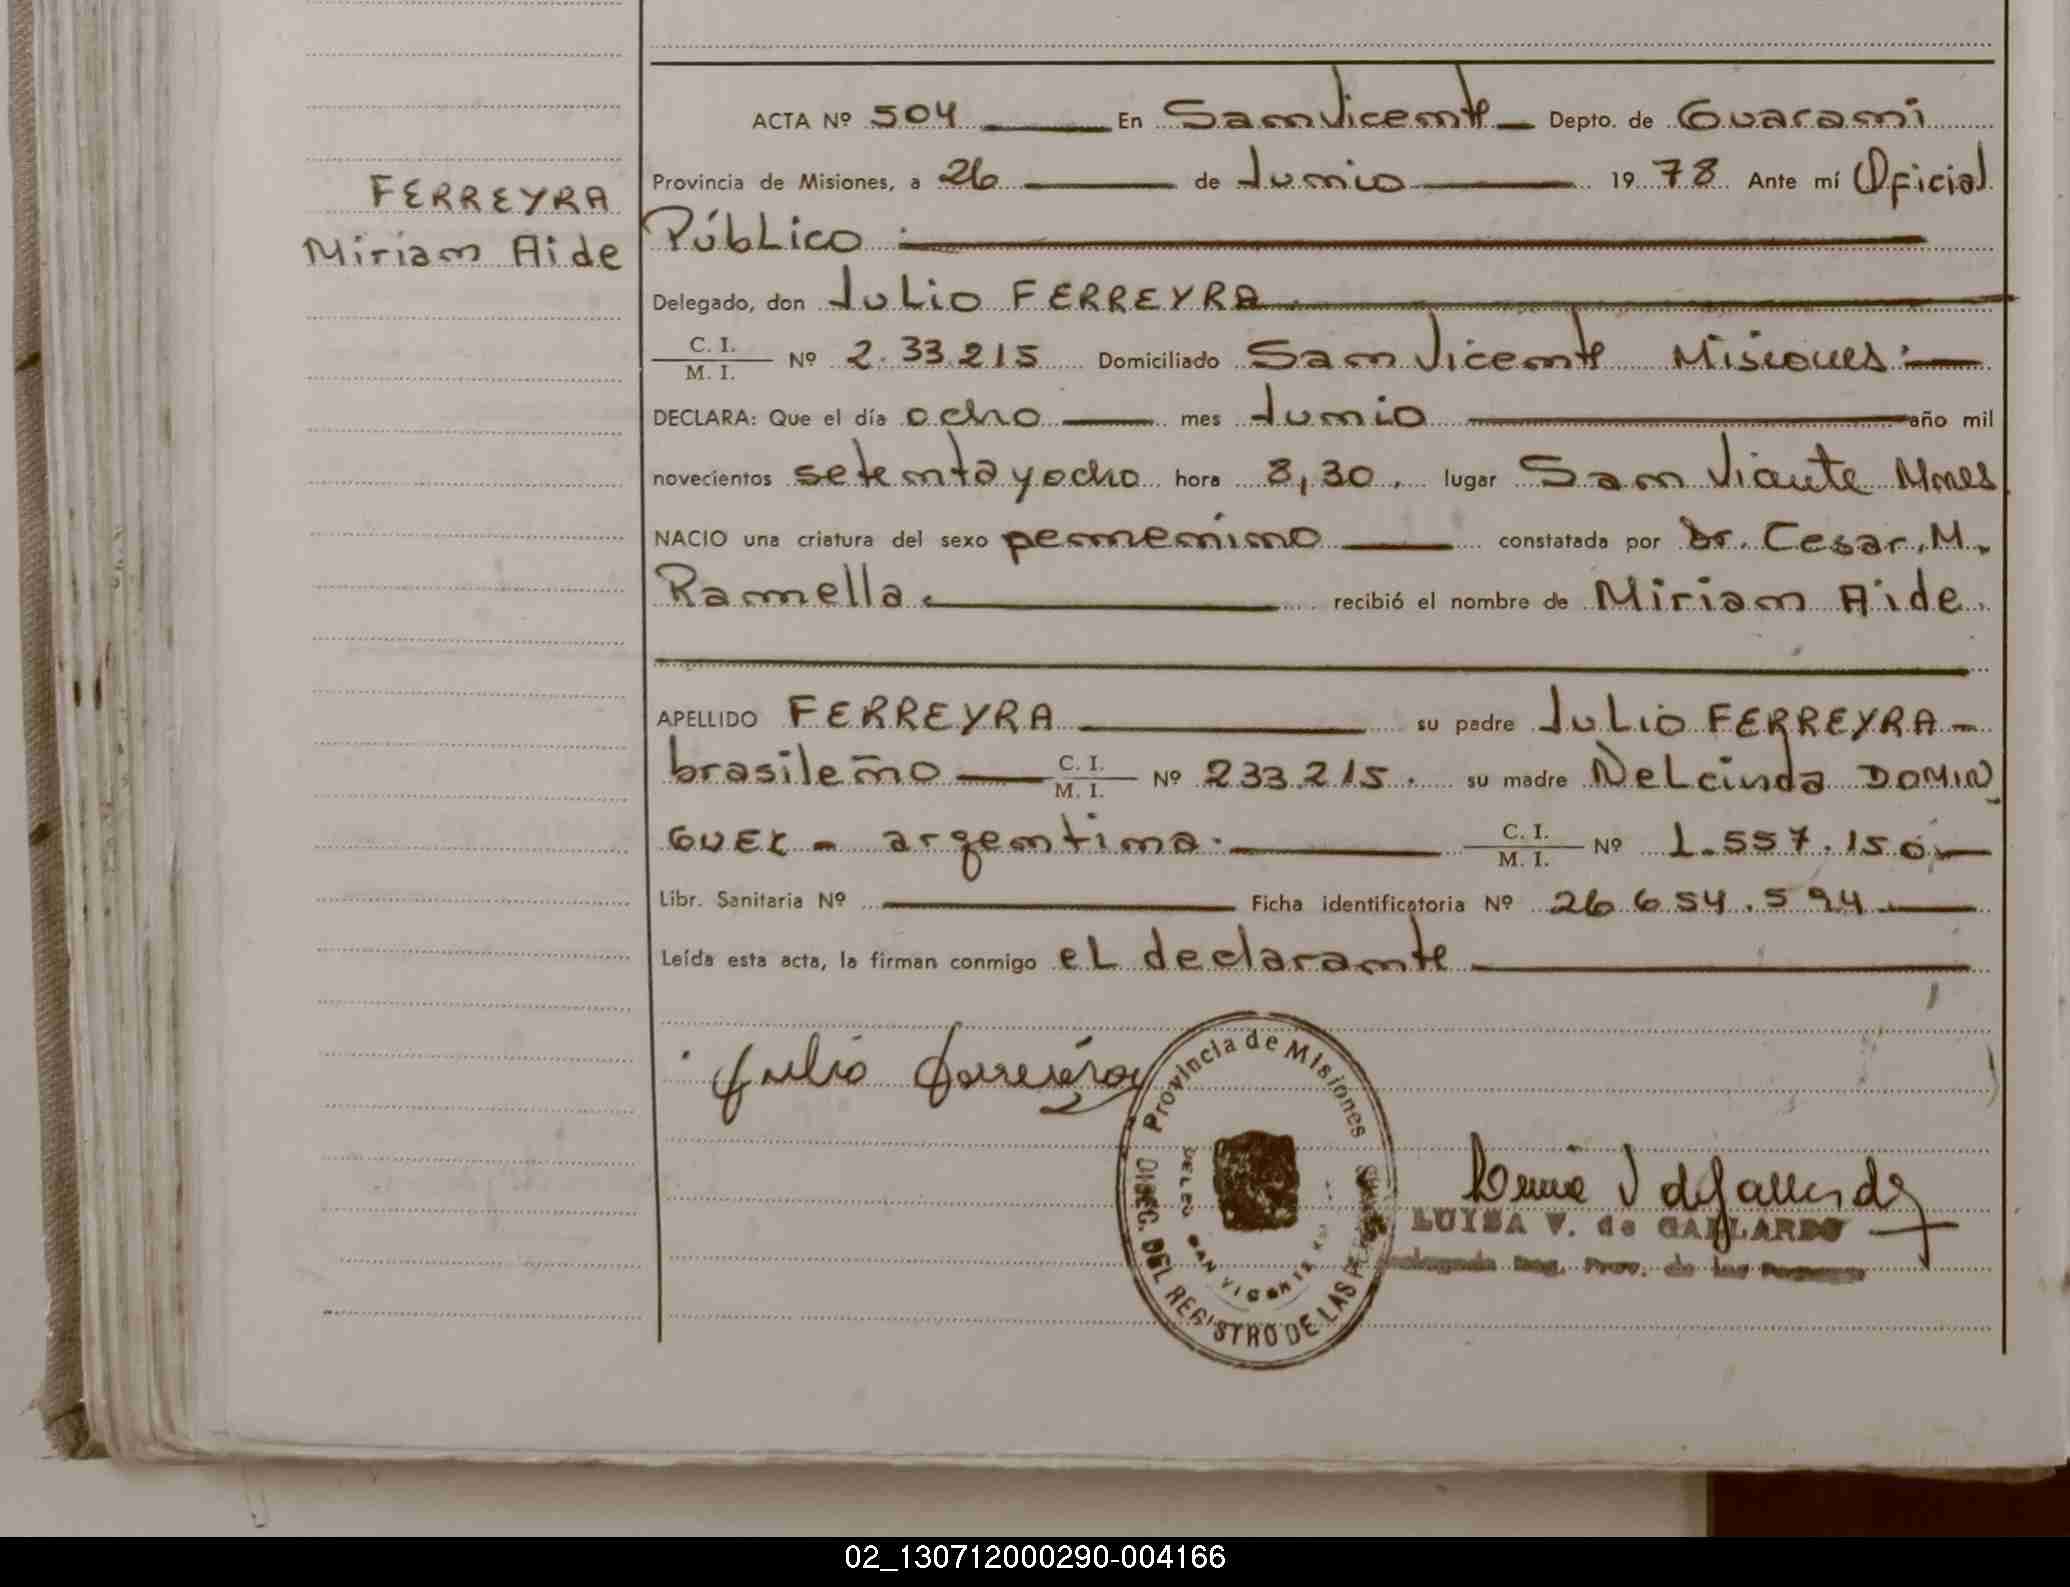 ACTA Nº 504 En San Vicente Depto. de Guarami
Provincia de Misiones, a 26 de Junio 1978 Ante mí Oficial
FERREYRA
Público
Miriam Aide
Delegado, don Julio FERREYRA
C. I. / M. I. Nº 2.33.215 Domiciliado San Vicente Misiones
DECLARA: Que el día ocho mes Junio año mil
novecientos setenta y ocho hora 8,30. lugar San Vicente Mnes
NACIO una criatura del sexo femenino constatada por Dr. Cesar. M.
Ramella. recibió el nombre de Miriam Aide.
APELLIDO FERREYRA su padre Julio FERREYRA -
brasileño C. I. / M. I. Nº 233.215. su madre Nelcinda DOMIN
GUEZ - argentina. C. I. / M. I. Nº 1.557.150
Libr. Sanitaria Nº Ficha identificatoria Nº 26 654.594
Leída esta acta, la firman conmigo el declarante
Julio Ferreira
Provincia de Misiones
DIREC. DEL REGISTRO DE LAS
SAN VICENTE
LUISA V. de GALLARDO
02_130712000290-004166